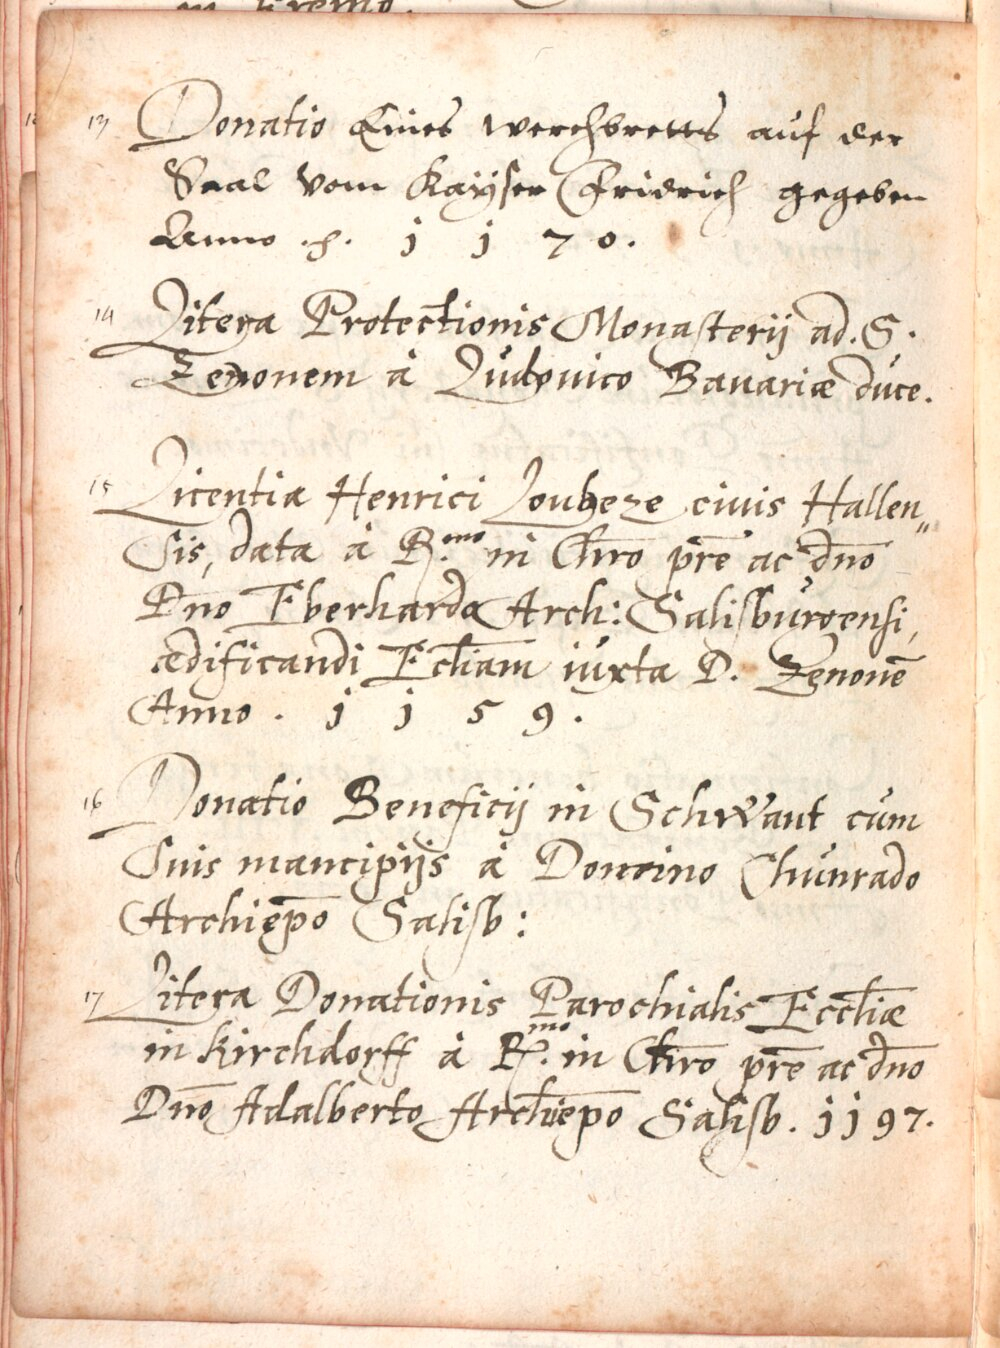 in Eremo.
13 Donatio Eines werchbretts auf der
Saal vom Kayser Fridrich gegeben
Anno .ꝛc. 1 1 7 0.
14 Litera Protectionis Monasterij ad. S.
Zenonem à Ludovico Bavariæ duce.
15 Licentia Henrici civis Hallen„
sis, data à R.mo in Chro͞ pre͞ ac dno͞
Dno͞ Eberhardo Arch: Salisburgensi,
ædificandi Eccliam͞ iuxta D. Zenone͞
Anno . 1 1 5 9 .
16 Donatio Beneficij in Schwant cum
suis mancipijs à Domino Chunrado
Archiepo͞ Salisb:
17 Litera Donationis Parochialis Eccliæ͞
in Kirchdorff à R.mo in Chro͞ pre͞ ac dno͞
Dno͞ Adalberto Archiepo͞ Salisb. 1197.